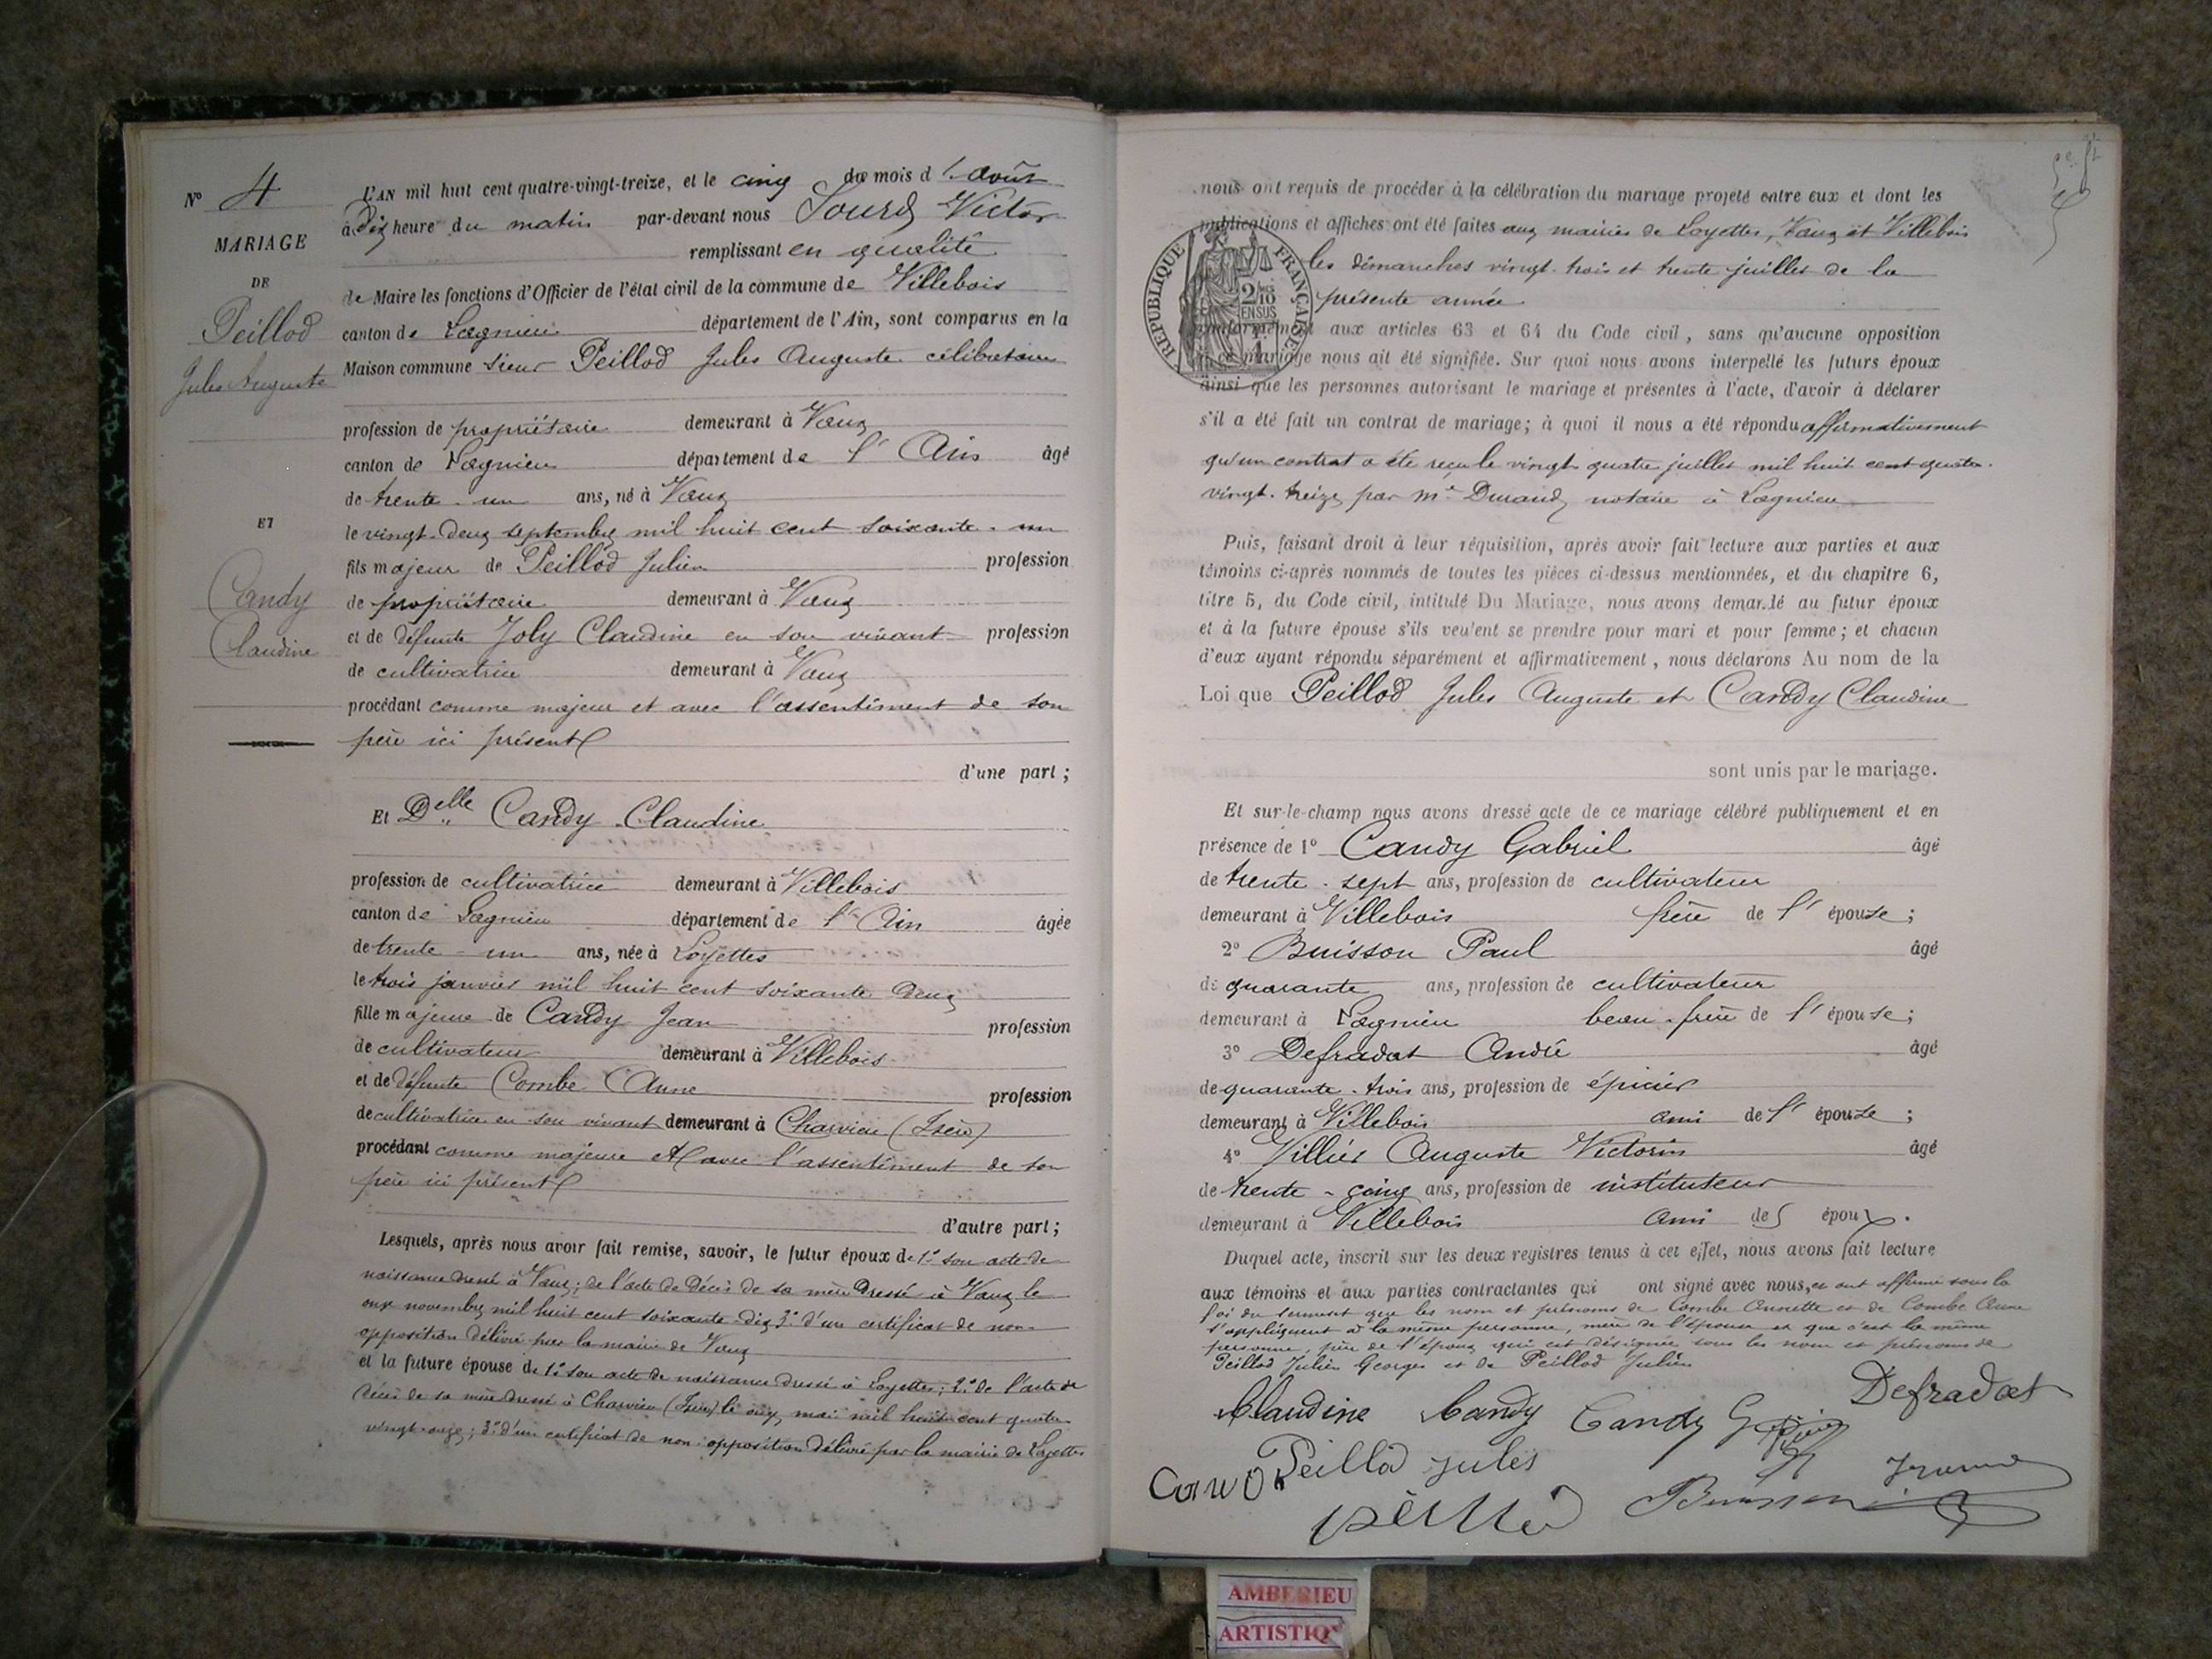 N° 4
MARIAGE
DE
Peillod
Jules Auguste
ET
Candy
Claudine
L'AN mil huit cent quatre-vingt-treize, et le cinq du mois d'Août
à Dix heure du matin par-devant nous Sourd Victor
remplissant en qualité
de Maire les fonctions d'Officier de l'état civil de la commune de Villebois
canton de Lagnieu département de l'Ain, sont comparus en la
Maison commune sieur Peillod Jules Auguste célibataire
profession de propriétaire demeurant à Vaux
canton de Lagnieu département de l'Ain âgé
de trente-un ans, né à Vaux
le vingt-deux septembre mil huit cent soixante-un
fils majeur de Peillod Julien profession
de propriétaire demeurant à Vaux
et de défunte Joly Claudine en son vivant profession
de cultivatrice demeurant à Vaux
procédant comme majeur et avec l'assentiment de son
père ici présent
d'une part ;
Et Delle Candy Claudine
profession de cultivatrice demeurant à Villebois
canton de Lagnieu département de l'Ain âgée
de trente-un ans, née à Loyettes
le trois janvier mil huit cent soixante deux
fille majeure de Candy Jean profession
de cultivateur demeurant à Villebois
et de défunte Combe Anne profession
de cultivatrice en son vivant demeurant à Charvieu (Isère)
procédant comme majeure et avec l'assentiment de son
père ici présent
d'autre part ;
Lesquels, après nous avoir fait remise, savoir, le futur époux de 1° son acte de
naissance dressé à Vaux ; de l'acte de décès de sa mère dressé à Vaux le
onze novembre mil huit cent soixante-dix 3° d'un certificat de non-
opposition délivré par la mairie de Vaux
et la future épouse de 1° son acte de naissance dressé à Loyettes ; 2° de l'acte de
décès de sa mère dressé à Charvieu (Isère) le onze mai mil huit cent quatre
vingt-onze ; 3° d'un certificat de non-opposition délivré par la mairie de Loyettes
nous ont requis de procéder à la célébration du mariage projeté entre eux et dont les
publications et affiches ont été faites aux mairies de Loyettes, Vaux et Villebois
les dimanches vingt-trois et trente juillet de la
présente année
REPUBLIQUE FRANÇAISE
2/10 EN SUS
conformément aux articles 63 et 64 du Code civil, sans qu'aucune opposition
à ce mariage nous ait été signifiée. Sur quoi nous avons interpellé les futurs époux
ainsi que les personnes autorisant le mariage et présentes à l'acte, d'avoir à déclarer
s'il a été fait un contrat de mariage ; à quoi il nous a été répondu affirmativement
qu'un contrat a été reçu le vingt quatre juillet mil huit cent quatre-
vingt-treize par Me Durand notaire à Lagnieu
Puis, faisant droit à leur réquisition, après avoir fait lecture aux parties et aux
témoins ci-après nommés de toutes les pièces ci-dessus mentionnées, et du chapitre 6,
titre 5, du Code civil, intitulé Du Mariage, nous avons demandé au futur époux
et à la future épouse s'ils veulent se prendre pour mari et pour femme ; et chacun
d'eux ayant répondu séparément et affirmativement, nous déclarons Au nom de la
Loi que Peillod Jules Auguste et Candy Claudine
sont unis par le mariage.
Et sur-le-champ nous avons dressé acte de ce mariage célébré publiquement et en
présence de 1° Candy Gabriel âgé
de trente-sept ans, profession de cultivateur
demeurant à Villebois frère de l'épouse ;
2° Buisson Paul âgé
de quarante ans, profession de cultivateur
demeurant à Lagnieu beau-frère de l'épouse ;
3° Defradat André âgé
de quarante-trois ans, profession de épicier
demeurant à Villebois ami de l'épouse ;
4° Villier Auguste Victorin âgé
de trente-cinq ans, profession de instituteur
demeurant à Villebois ami de l'époux.
Duquel acte, inscrit sur les deux registres tenus à cet effet, nous avons fait lecture
aux témoins et aux parties contractantes qui ont signé avec nous, et ont affirmé sous la
foi du serment que les nom et prénoms de Combe Annette et de Combe Anne
s'appliquent à la même personne, mère de l'épouse et que c'est la même
personne, père de l'époux qui est désignée sous les nom et prénoms de
Peillod Julien Georges et de Peillod Julien
Claudine Candy Candy G Defradat
Peillod jules
Buisson
AMBERIEU
ARTISTIQ